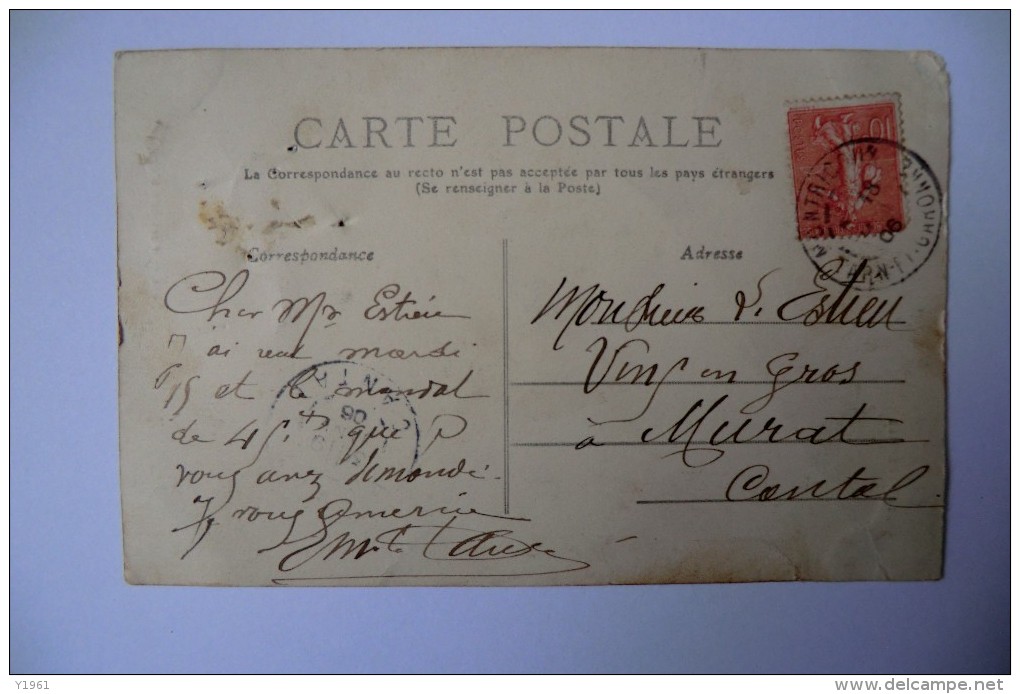 CARTE POSTALE
La Correspondance au recto n'est pas acceptée par tous les pays étrangers
(Se renseigner à la Poste)
Correspondance
Cher Mr Estieu
J'ai reçu mardi
15 et le mandat
de 45 f. que
vous avez demandé.
vous remercie
Adresse
Monsieur L. Estieu
Vins en gros
à Murat
Cantal.
10
TARN-ET-GARONNE
06
Y1961
delcampe.net